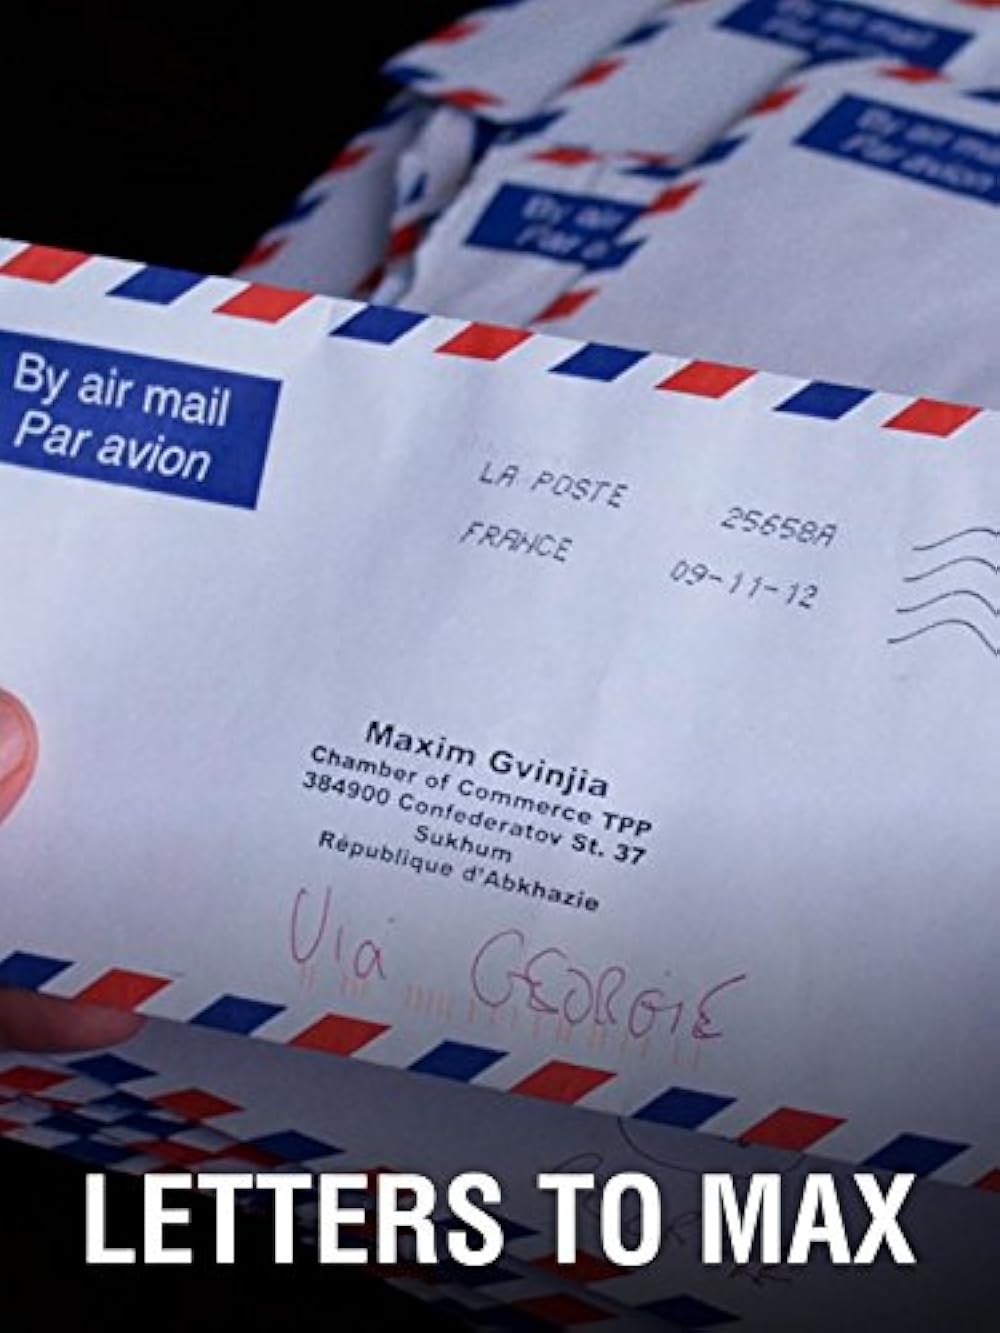 By air mail
By air ma
Par avion
By air
Par a
By air mail
Par avion
LA POSTE 25658A
FRANCE 09-11-12
Maxim Gvinjia
Chamber of Commerce TPP
384900 Confederatov St. 37
Sukhum
République d'Abkhazie
Via GEORGIE
LETTERS TO MAX